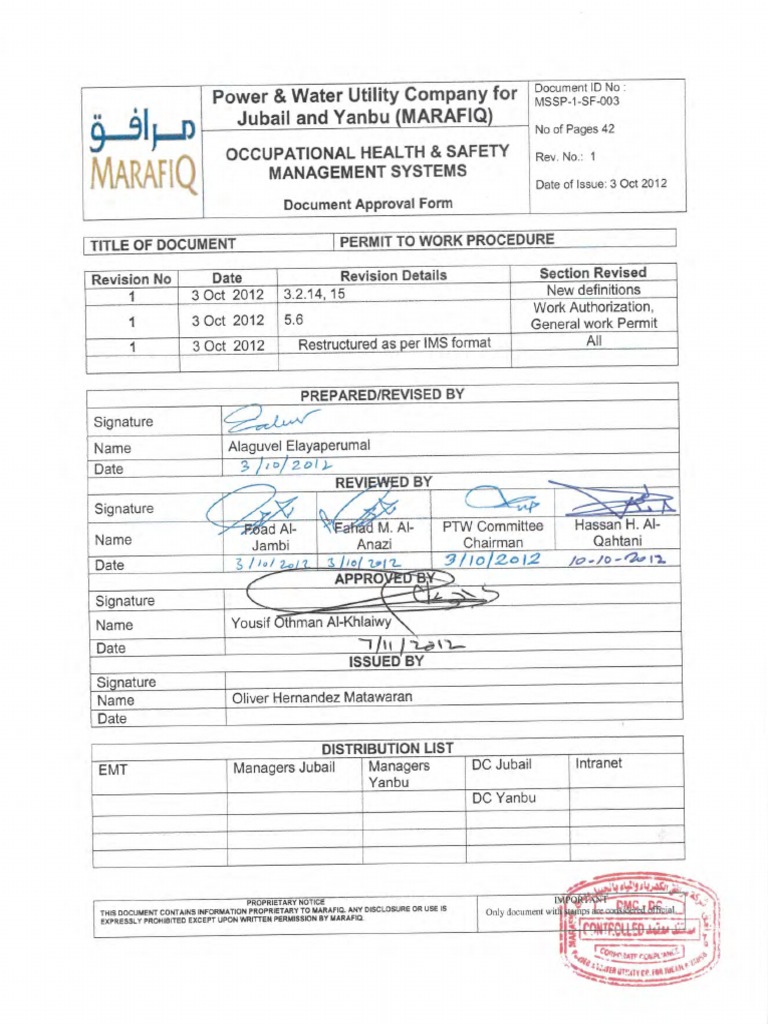 مرافق
MARAFIQ
Power & Water Utility Company for
Jubail and Yanbu (MARAFIQ)
OCCUPATIONAL HEALTH & SAFETY
MANAGEMENT SYSTEMS
Document Approval Form
Document ID No :
MSSP-1-SF-003
No of Pages 42
Rev. No.: 1
Date of Issue: 3 Oct 2012
TITLE OF DOCUMENT PERMIT TO WORK PROCEDURE
Revision No Date Revision Details Section Revised
1 3 Oct 2012 3.2.14, 15 New definitions
1 3 Oct 2012 5.6 Work Authorization,
General work Permit
1 3 Oct 2012 Restructured as per IMS format All
PREPARED/REVISED BY
Signature
Name Alaguvel Elayaperumal
Date 3/10/2012
REVIEWED BY
Signature
Name Foad Al-Jambi Fahad M. Al-Anazi PTW Committee Chairman Hassan H. Al-Qahtani
Date 3/10/2012 3/10/2012 3/10/2012 10-10-2012
APPROVED BY
Signature
Name Yousif Othman Al-Khlaiwy
Date 7/11/2012
ISSUED BY
Signature
Name Oliver Hernandez Matawaran
Date
DISTRIBUTION LIST
EMT Managers Jubail Managers Yanbu DC Jubail Intranet
DC Yanbu
PROPRIETARY NOTICE
THIS DOCUMENT CONTAINS INFORMATION PROPRIETARY TO MARAFIQ. ANY DISCLOSURE OR USE IS
EXPRESSLY PROHIBITED EXCEPT UPON WRITTEN PERMISSION BY MARAFIQ.
IMPORTANT
Only document with stamps are considered official.
CONTROLLED
CORPORATE COMPLIANCE